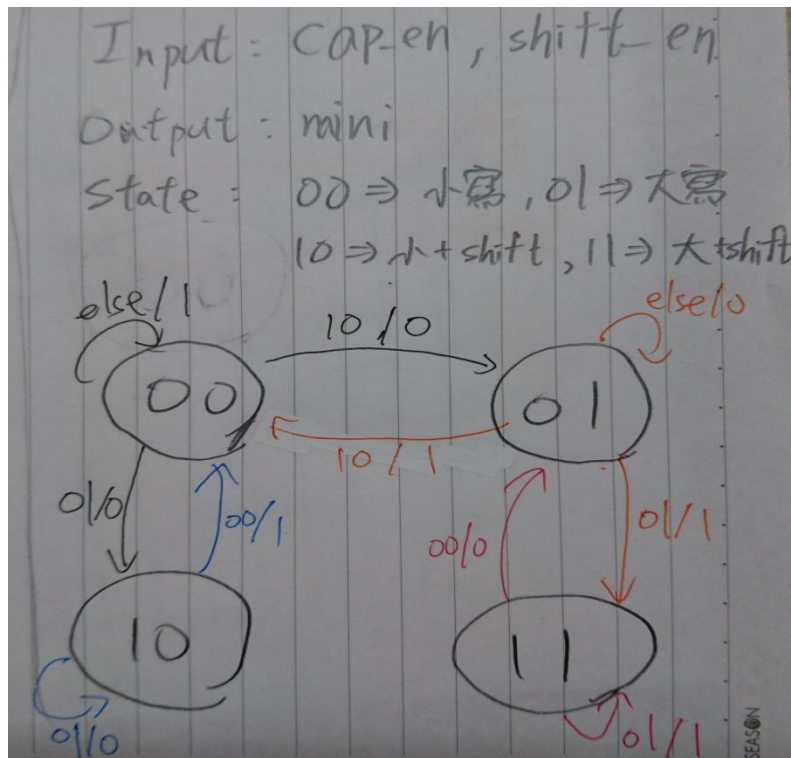 Input : cap_en , shift_en
Output : mini
State : 00 ⇒ 小寫 , 01 ⇒ 大寫
10 ⇒ 小+shift , 11 ⇒ 大+shift
else/1
10/0
else/0
00
01
10/1
01/0
00/1
00/0
01/1
10
11
01/0
01/1
SEASON